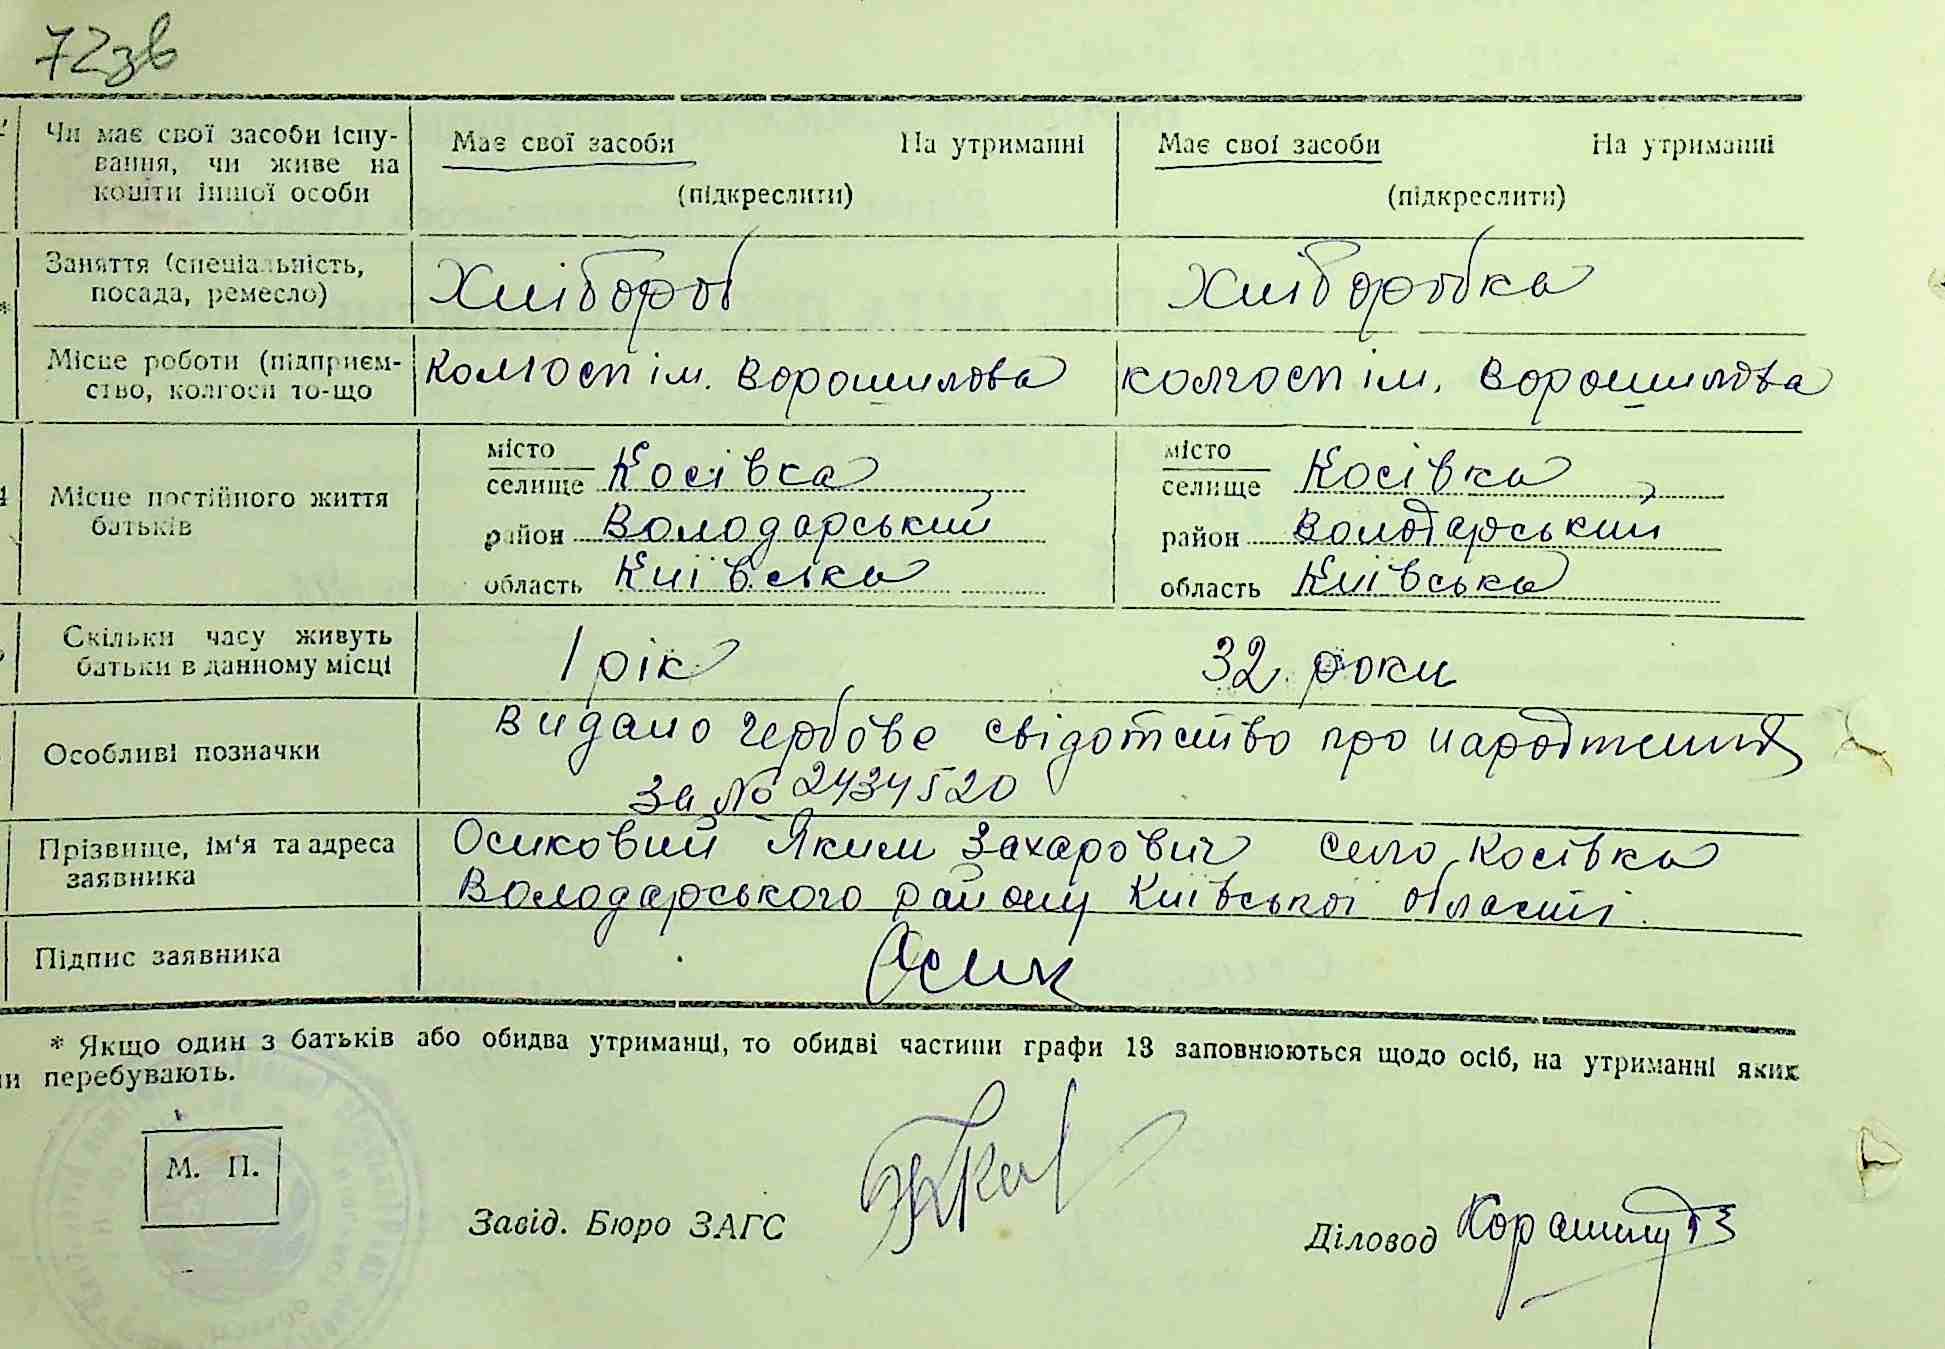 72зв
Чи має свої засоби існу-
вання, чи живе на
кошти іншої особи
Має свої засоби На утриманні Має свої засоби На утриманні
(підкреслити) (підкреслити)
Заняття (спеціальність,
посада, ремесло)
Хлібороб Хліборобка
Місце роботи (підприєм-
ство, колгосп то-що
Колгосп ім. Ворошилова колгосп ім. Ворошилова
Місце постійного життя
батьків
місто місто
селище Косівка селище Косівка
район Володарський район Володарський
область Київська область Київська
Скільки часу живуть
батьки в данному місці
1 рік 32 роки
Особливі позначки
Видано гербове свідотство про народження
за № 2434520
Прізвище, ім'я та адреса
заявника
Осиковий Яким Захарович село Косівка
Володарського району Київської області.
Підпис заявника
Осик
* Якщо один з батьків або обидва утриманці, то обидві частини графи 13 заповнюються щодо осіб, на утриманні яких
ни перебувають.
М. П.
Завід. Бюро ЗАГС
Діловод